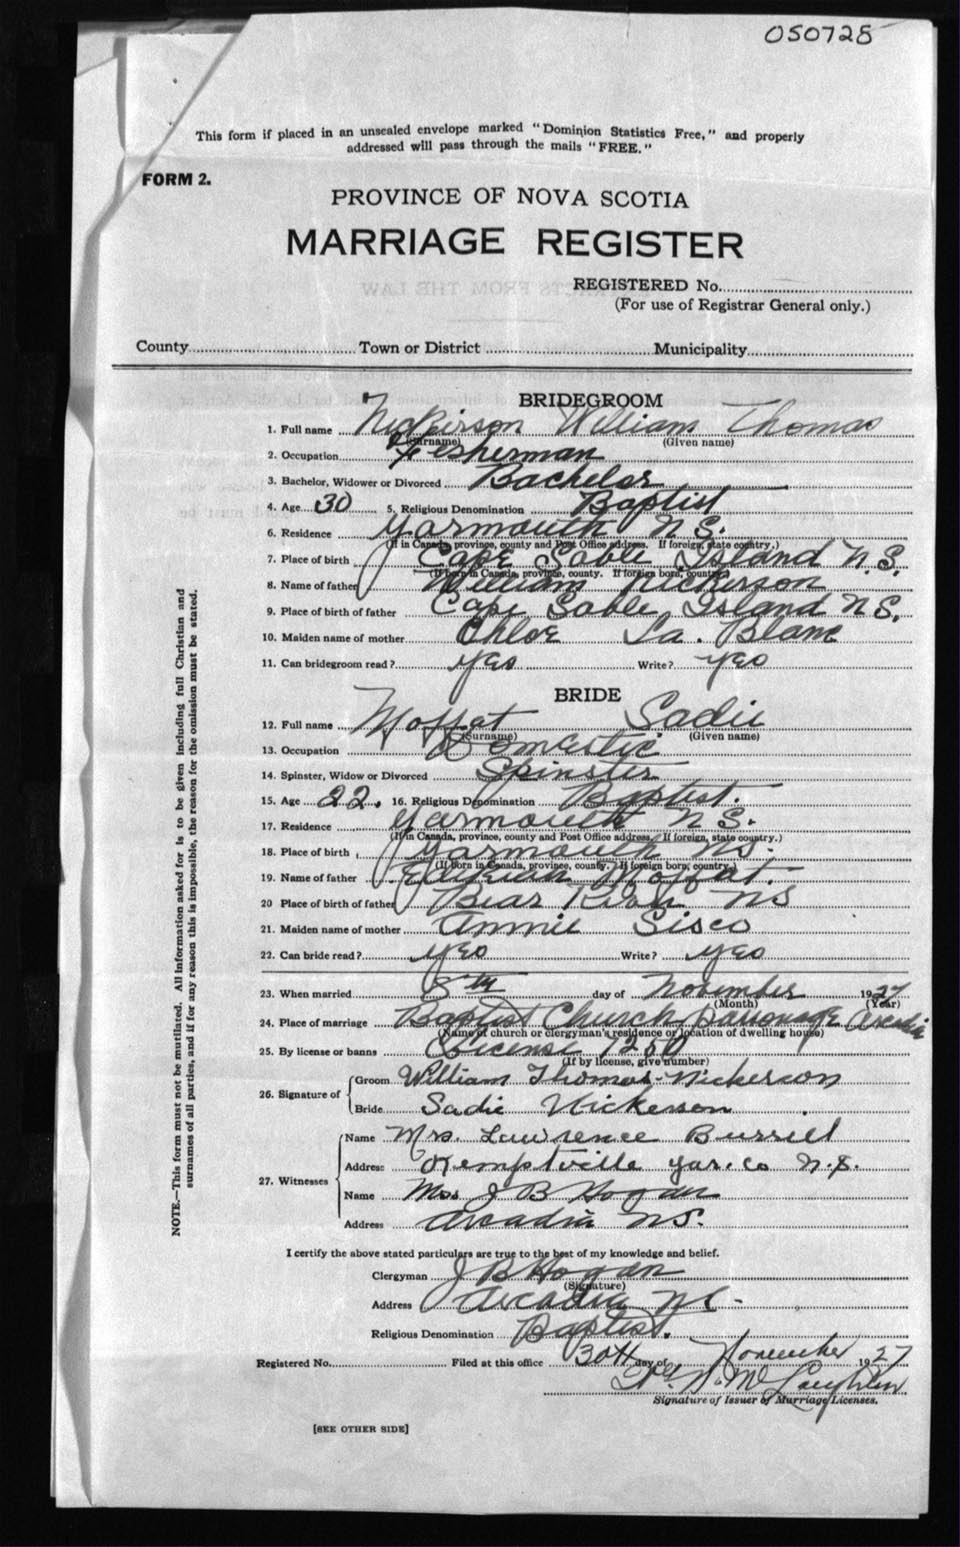 050728
This form if placed in an unsealed envelope marked "Dominion Statistics Free," and properly
addressed will pass through the mails "FREE."
FORM 2.
PROVINCE OF NOVA SCOTIA
MARRIAGE REGISTER
REGISTERED No.
(For use of Registrar General only.)
County Town or District Municipality
BRIDEGROOM
1. Full name Nickerson William Thomas
(Surname) (Given name)
2. Occupation Fisherman
3. Bachelor, Widower or Divorced Bachelor
4. Age 30 5. Religious Denomination Baptist
6. Residence Yarmouth N.S.
(If in Canada, province, county and Post Office address. If foreign, state country.)
7. Place of birth Cape Sable Island N.S.
(If born in Canada, province, county. If foreign born, country.)
8. Name of father William Nickerson
9. Place of birth of father Cape Sable Island N S.
10. Maiden name of mother Chloe La. Blanc
11. Can bridegroom read? yes Write? yes
BRIDE
12. Full name Moffat Sadie
(Surname) (Given name)
13. Occupation Domestic
14. Spinster, Widow or Divorced Spinster
15. Age 22. 16. Religious Denomination Baptist.
17. Residence Yarmouth N S.
(If in Canada, province, county and Post Office address. If foreign, state country.)
18. Place of birth Yarmouth NS.
(If born in Canada, province, county. If foreign born, country.)
19. Name of father Moffat.
20 Place of birth of father Bear River NS
21. Maiden name of mother Annie Sisco
22. Can bride read? yes Write? yes
23. When married 8th day of November 1927
(Month) (Year)
24. Place of marriage Baptist Church parsonage Arcadia
(Name of church or clergyman's residence or location of dwelling house)
25. By license or banns License 1250
(If by license, give number)
26. Signature of
Groom William Thomas Nickerson
Bride Sadie Nickerson
27. Witnesses
Name Mrs. Lawrence Burrill
Address Kemptville Yar. Co N.S.
Name Mrs J B Hogan
Address Arcadia NS.
I certify the above stated particulars are true to the best of my knowledge and belief.
Clergyman J B Hogan
(Signature)
Address Arcadia NS
Religious Denomination Baptist.
Registered No. Filed at this office 30th day of November 1927
McLaughlin
Signature of Issuer of Marriage Licenses.
[SEE OTHER SIDE]
NOTE.—This form must not be mutilated. All information asked for is to be given including full Christian and
surnames of all parties, and if for any reason this is impossible, the reason for the omission must be stated.